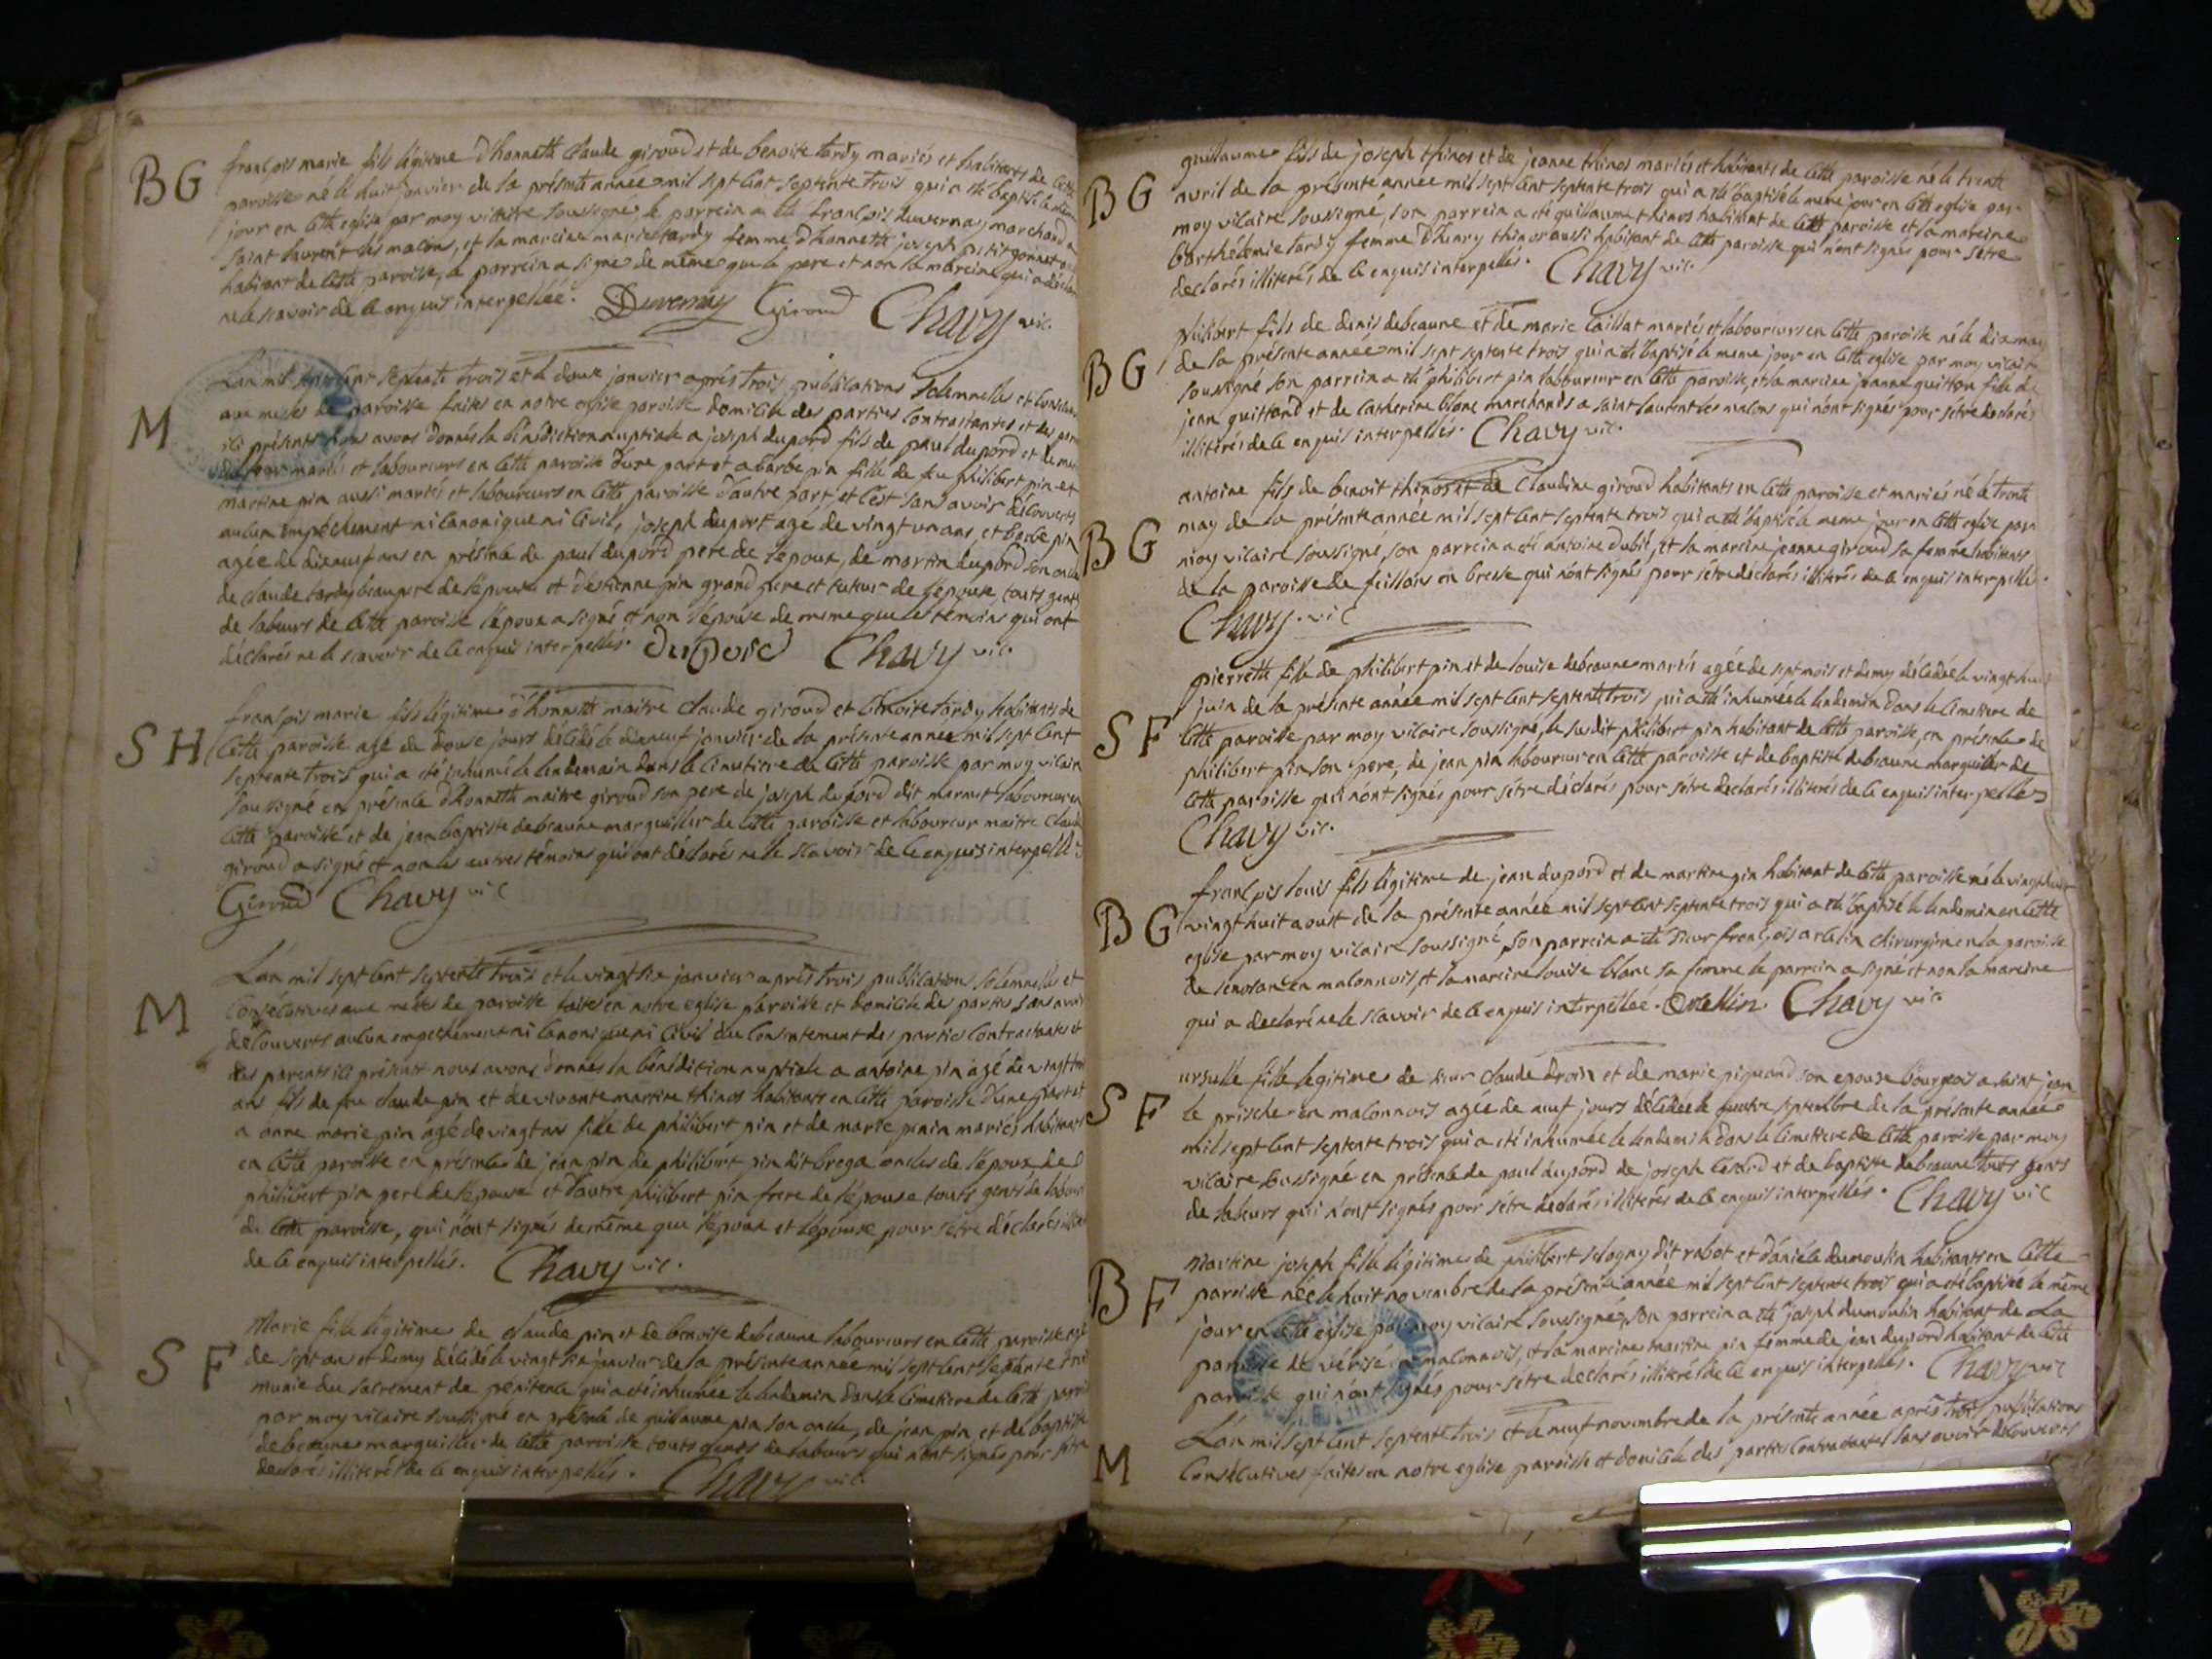 BG
françois marie fils légitime d'honnette claude giroud et de benoite tardy mariés et habitants de cette
paroisse né le huit janvier de la présente année mil sept cent septente trois qui a été baptisé le même
jour en cette eglise par moy vicaire soussigné, le parrein a été françois duvernay marchand a
saint laurent les macons, et la marceine marie tardy femme d'honnette joseph petit gonnet
habitant de cette paroisse, le parrein a signé de même que le pere et non la marreine qui a déclaré
ne le scavoir de ce enquis interpellée. Duvernay Giroud Chavy vic.
M
L'an mil sept cent septente trois et le douze janvier après trois publications solemnelles et consecutives
aux messes de paroisse faites en notre eglise paroisse domicile des parties contractantes et des parents
ici présents nous avons donnés la bénédiction nuptiale a joseph dupord fils de paul dupord et de
mariés et laboureurs en cette paroisse d'une part et a barbe pin fille de feu philibert pin et
martine pin aussi mariés et laboureurs en cette paroisse d'autre part, et c'est sans avoir découverts
aucun empêchement ni canonique ni civil, joseph duport agé de vingt un ans, et barbe pin
agée de dixneuf ans en présence de paul dupord pere de l'epoux, de martin dupord son oncle
de claude tardy beaupere de l'épouse et d'estienne pin grand pere et tuteur de l'épouse, touts gents
de labeurs de cette paroisse l'époux a signé et non l'épouse de meme que les temoins qui ont
déclarés ne le scavoir de ce enquis interpellés. Dupord Chavy vic.
SH
françois marie fils légitime d'honnette maitre claude giroud et benoite tardy habitants de
cette paroisse agé de douse jours décédé le dixneuf janvier de la présente année mil sept cent
septente trois qui a été inhumé le lendemain dans le cimetiere de cette paroisse par moy vicaire
soussigné en présence d'honnette maitre giroud son pere de joseph dupord dit marmet laboureur en
cette paroisse et de jean baptiste debeaune marguillier de cette paroisse et laboureur maitre claude
giroud a signé et non les autres témoins qui ont déclarés ne le scavoir de ce enquis interpellés
Giroud Chavy vic
M
L'an mil sept cent septente trois et le vingt six janvier après trois publication solemnelles et
consecutives aux messes de paroisse faites en notre eglise paroisse et domicile des parties sans avoir
découverts aucun empechement ni canonique ni civil du consentement des parties contractantes et
des parents ici présents nous avons donnés la bénédiction nuptiale a antoine pin agé de vingt
ans fils de feu claude pin et de vivante martine thinos habitants en cette paroisse d'une part et
a anne marie pin agé de vingt ans fille de philibert pin et de marie pinin mariés habitants
en cette paroisse en présence de jean pin de philibert pin dit brega oncles de l'epoux de
philibert pin pere de l'epouse et d'autre philibert pin frere de l'épouse touts gents de labeurs
de cette paroisse, qui n'ont signés de même que l'époux et l'épouse pour s'etre déclarés
de ce enquis interpellés. Chavy vic.
SF
Marie fille légitime de claude pin et de benoite debeaune laboureurs en cette paroisse agée
de sept ans et demy décédé le vingt six janvier de la présente année mil sept cent septante trois
munie du sacrement de pénitence qui a été inhumée le lendemin dans le cimetiere de cette paroisse
par moy vicaire soussigné en présence de guillaume pin son oncle, de jean pin et de baptiste
debeaune marguillier de cette paroisse touts gents de labeurs qui n'ont signés pour s'être
declarés illiterés de ce enquis interpellés. Chavy vic.
BG
guillaume fils de joseph thinos et de jeanne thinos mariés et habitants de cette paroisse né le trente
avril de la présente année mil sept cent septente trois qui a été baptisé le meme jour en cette eglise par
moy vicaire soussigné, son parrein a été guillaume thinos habitant de cette paroisse et la marceine
barthélemie tardy femme d'henry thinos aussi habitant de cette paroisse qui n'ont signés pour s'etre
declarés illiterés de ce enquis interpellés. Chavy vic.
BG
philibert fils de denis debeaune et de marie caillat mariés et laboureurs en cette paroisse né le dix may
de la présente année mil sept septente trois qui a été baptisé le meme jour en cette eglise par moy vicaire
soussigné son parrein a été philibert pin laboureur en cette paroisse, et la marceine jeanne guitton fille de
jean guittand et de catherine blanc marchands a saint laurent les macons qui n'ont signés pour s'etre declarés
illiterés de ce enquis interpellés. Chavy vic.
BG
antoine fils de benoit thinos et de claudine giroud habitants en cette paroisse et mariés né le trente
may de la présente année mil sept cent septente trois qui a été baptisé le meme jour en cette eglise par
moy vicaire soussigné, son parrein a été antoine dubié, et sa marceine jeanne giroud sa femme habitants
de la paroisse de feillans en bresse qui n'ont signés pour s'etre déclarés illiterés de ce enquis interpellé.
Chavy. vic
SF
pierrette fille de philibert pin et de louise debeaune mariés agée de sept mois et demy décédée le vingt huit
juin de la présente année mil sept cent septente trois qui a été inhumée le lendemin dans le cimetiere de
cette paroisse par moy vicaire soussigné, le susdit philibert pin habitant de cette paroisse, en présence de
philibert pin son pere, de jean pin laboureur en cette paroisse et de baptiste debeaune marguillier de
cette paroisse qui n'ont signés pour s'étre déclarés pour s'étre declarés illiterés de ce enquis interpellés
Chavy vic.
BG
françois louis fils légitime de jean dupord et de martine pin habitant de cette paroisse né le vingt huit
vingt huit aoust de la présente année mil sept cent septente trois qui a été baptisé le lendemin en cette
eglise par moy vicaire soussigné, son parrein a été sieur françois arcelin chirurgien en la paroisse
de senosan en maconnois, et la marceine louise blanc sa femme le parrein a signé et non la marceine
qui a declaré ne le scavoir de ce enquis interpellée. Chavy vic.
SF
ursulle fille legitime de sieur claude droin et de marie piquand son epouse bourgeois a saint jean
le prische en maconnois agée de neuf jours décédée le quatre septembre de la présente année
mil sept cent septente trois qui a été inhumée le lendemin dans le cimetiere de cette paroisse par moy
vicaire soussigné en présence de paul dupord de joseph tetard et de baptiste debeaune touts gents
de labeurs qui n'ont signés pour s'étre déclarés illiterés de ce enquis interpellés. Chavy vic
BF
Martine joseph fille légitime de philibert sologny dit rabot et danièle dumoulin habitants en cette
paroisse née le huit novembre de la présente année mil sept cent septente trois qui a été baptisé le même
jour en cette eglise par moy vicaire soussigné, son parrein a été joseph dumoulin habitant de la
paroisse de vérisé en maconnois, et la marceine martine pin femme de jean dupord habitant de cette
paroisse qui n'ont signés pour s'étre declarés illiterés de ce enquis interpellés. Chavy vic
M
L'an mil sept cent septente trois et le neuf novembre de la présente année après trois publications
consécutives faites en notre eglise paroisse et domicile des parties contractantes sans avoir découverts